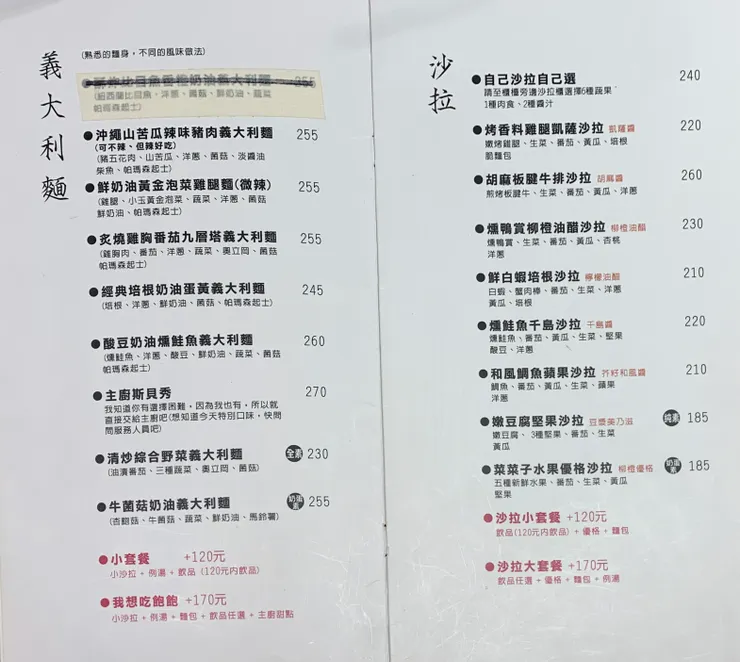 義大利麵
(熟悉的麵身，不同的風味做法)
奶油義大利麵 255
帕瑪森起士)
●沖繩山苦瓜辣味豬肉義大利麵 255
(可不辣、但辣好吃)
(豬五花肉、山苦瓜、洋蔥、菌菇、淡醬油
柴魚、帕瑪森起士)
●鮮奶油黃金泡菜雞腿麵(微辣) 255
(雞腿、小玉黃金泡菜、蔬菜、洋蔥、菌菇
鮮奶油、帕瑪森起士)
●炙燒雞胸番茄九層塔義大利麵 255
(雞胸肉、番茄、洋蔥、蔬菜、奧立岡、菌菇
帕瑪森起士)
●經典培根奶油蛋黃義大利麵 245
(培根、洋蔥、鮮奶油、菌菇、帕瑪森起士)
●酸豆奶油燻鮭魚義大利麵 260
(燻鮭魚、洋蔥、酸豆、鮮奶油、蔬菜、菌菇
帕瑪森起士)
●主廚斯貝秀 270
我知道你有選擇困難，因為我也有，所以就
直接交給主廚吧(想知道今天特別口味，快問
問服務人員吧)
●清炒綜合野菜義大利麵 全素 230
(油漬番茄、三種蔬菜、奧立岡、菌菇)
●牛菌菇奶油義大利麵 奶蛋素 255
(杏鮑菇、牛菌菇、蔬菜、鮮奶油、馬鈴薯)
●小套餐 +120元
小沙拉 + 例湯 + 飲品 (120元內飲品)
●我想吃飽飽 +170元
小沙拉 + 例湯 + 麵包 + 飲品任選 + 主廚甜點
沙拉
●自己沙拉自己選 240
請至櫃檯旁邊沙拉櫃選擇6種蔬果
1種肉食、2種醬汁
●烤香料雞腿凱薩沙拉 凱薩醬 220
嫩烤雞腿、生菜、番茄、黃瓜、培根
脆麵包
●胡麻板腱牛排沙拉 胡麻醬 260
煎烤板腱牛、生菜、番茄、黃瓜、洋蔥
●燻鴨賞柳橙油醋沙拉 柳橙油醋 230
燻鴨賞、生菜、番茄、黃瓜、杏桃
洋蔥
●鮮白蝦培根沙拉 檸檬油醋 210
白蝦、蟹肉棒、番茄、生菜、洋蔥
黃瓜、培根
●燻鮭魚千島沙拉 千島醬 220
燻鮭魚、番茄、黃瓜、生菜、堅果
酸豆、洋蔥
●和風鯛魚蘋果沙拉 芥籽和風醬 210
鯛魚、番茄、黃瓜、生菜、蘋果
洋蔥
●嫩豆腐堅果沙拉 豆漿美乃滋 純素 185
嫩豆腐、3種堅果、番茄、生菜
黃瓜
●菜菜子水果優格沙拉 柳橙優格 奶蛋素 185
五種新鮮水果、番茄、生菜、黃瓜
堅果
●沙拉小套餐 +120元
飲品(120元內飲品) + 優格 + 麵包
●沙拉大套餐 +170元
飲品任選 + 優格 + 麵包 + 例湯